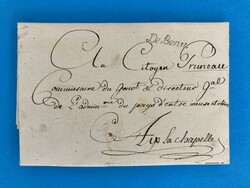 De Bonn
Au
Citoyen Pruneau
Commissaire du Gouvt & directeur Gal
de L'admin du pays d'entre meuse et rhin
a
Aix la chapelle